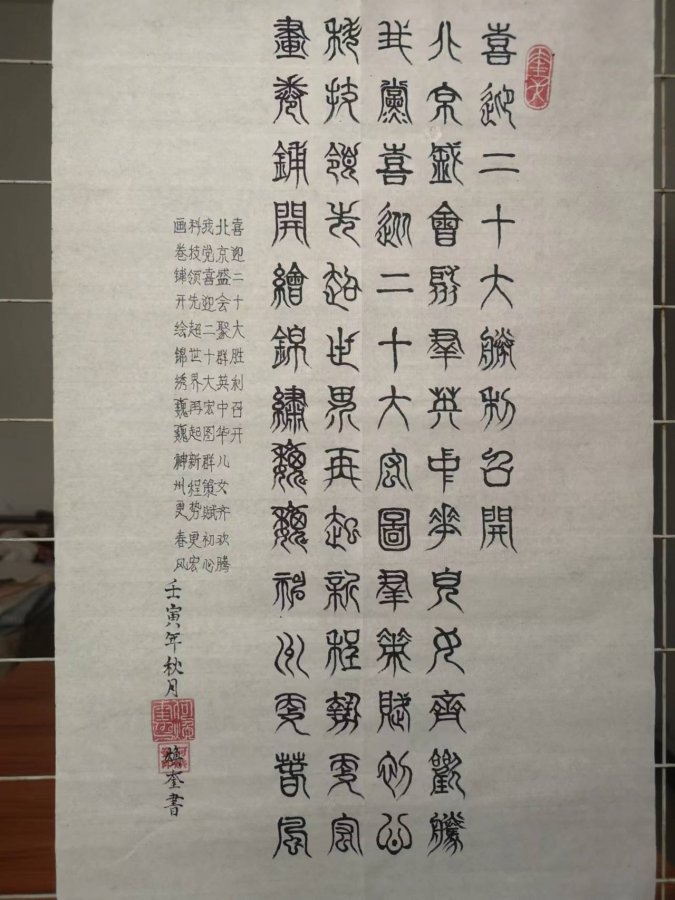 喜迎二十大勝利召開
北京盛會聚羣英中華兒女齊歡騰
我黨喜迎二十大宏圖羣策賦初心
科技領先超世界再起新程勢更宏
畫卷鋪開繪錦繡巍巍神州更春風
喜迎二十大胜利召开
北京盛会聚群英中华儿女齐欢腾
我党喜迎二十大宏图群策赋初心
科技领先超世界再起新程势更宏
画卷铺开绘锦绣巍巍神州更春风
壬寅年秋月
奎書